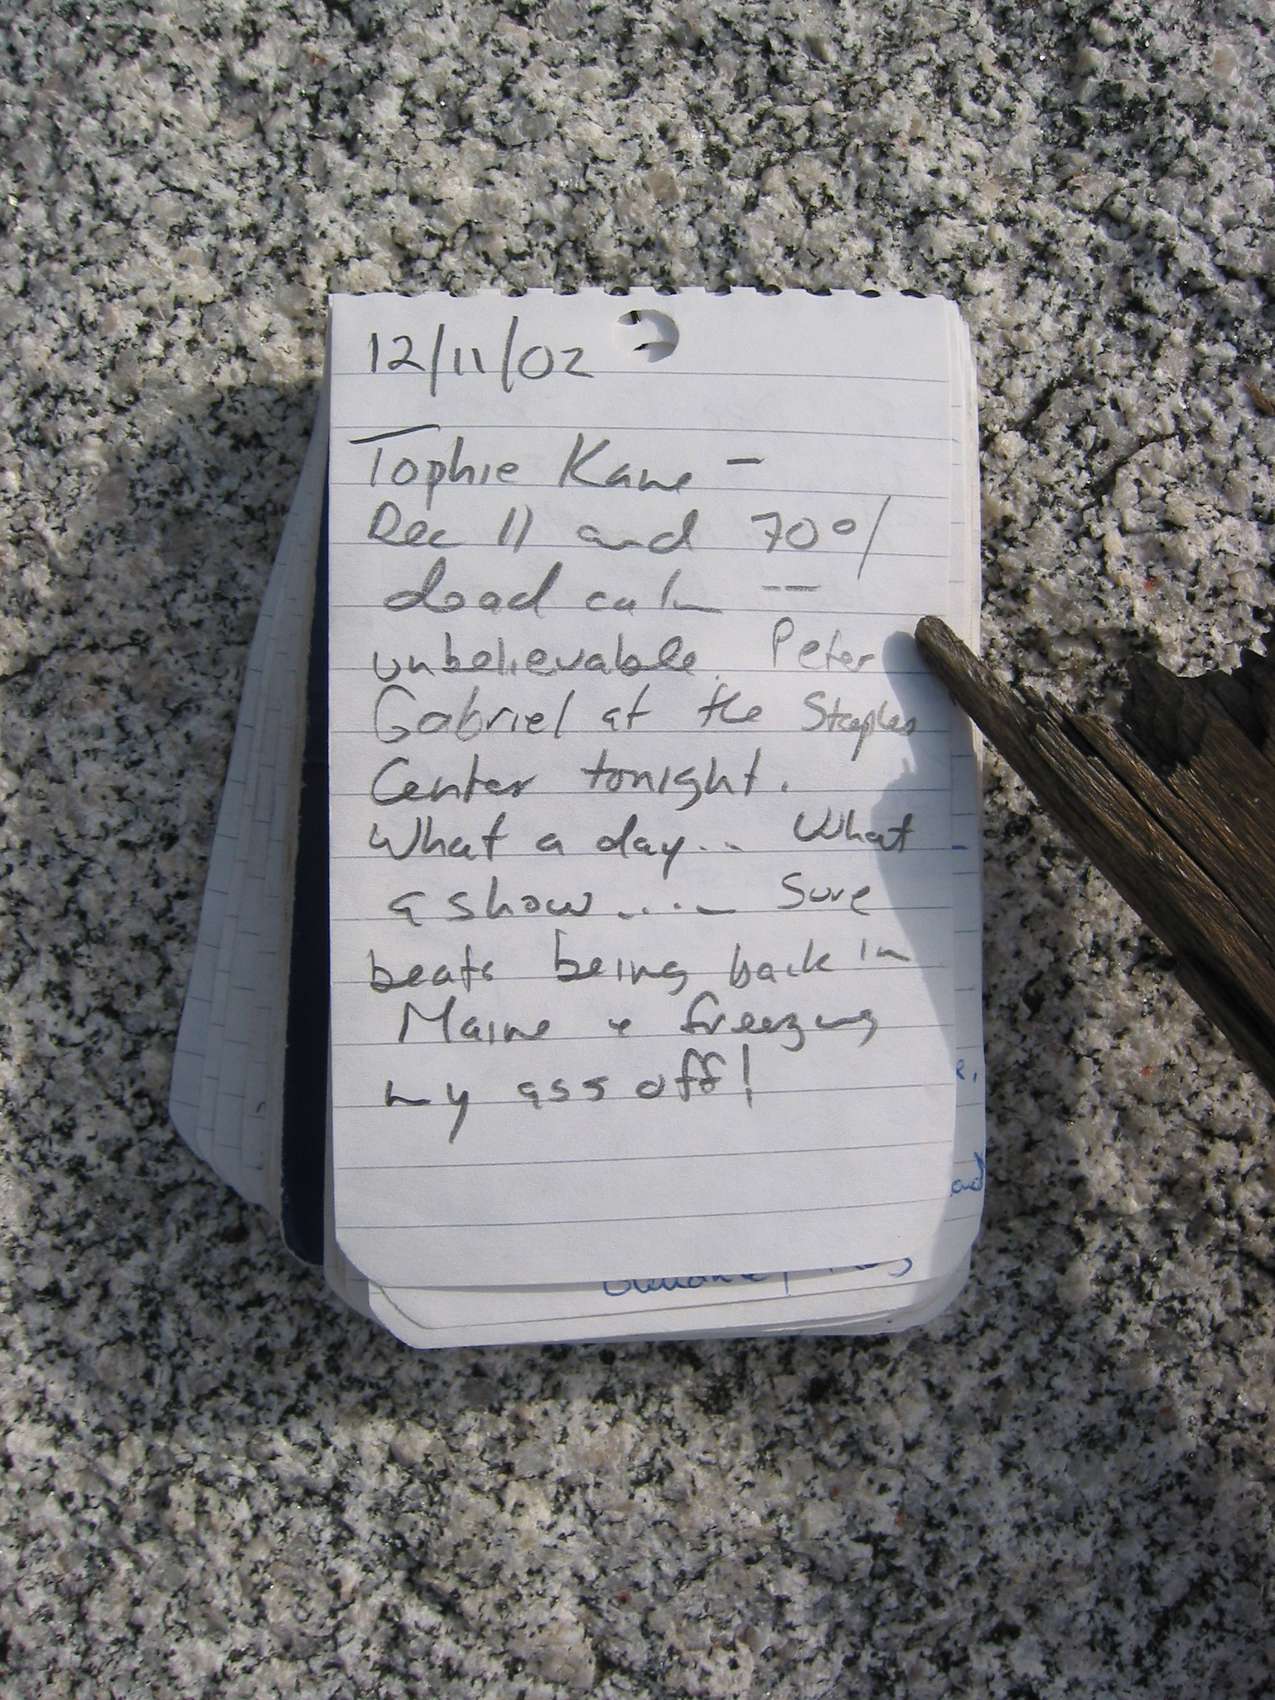 12/11/02
Tophie Kane -
Dec 11 and 70°/
dead calm --
unbelievable. Peter
Gabriel at the Staples
Center tonight.
What a day... What
a show.... Sure
beats being back in
Maine & freezing
my ass off!